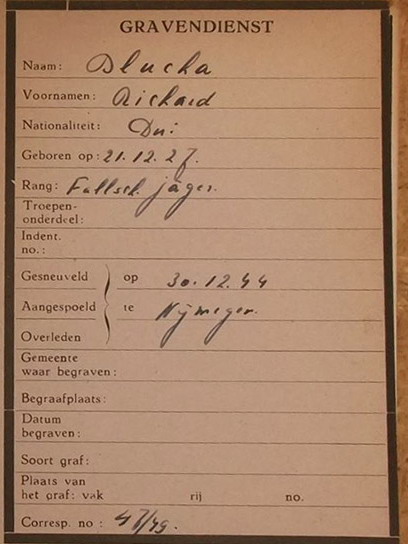 GRAVENDIENST
Naam: Dlucha
Voornamen: Richard
Nationaliteit: Dui
Geboren op: 21.12.27.
Rang: Fallsch. jäger.
Troepen-
onderdeel:
Indent.
no.:
Gesneuveld op 30.12.44
Aangespoeld te Nijmegen.
Overleden
Gemeente
waar begraven:
Begraafplaats:
Datum
begraven:
Soort graf:
Plaats van
het graf: vak rij no.
Corresp. no: 47/49.